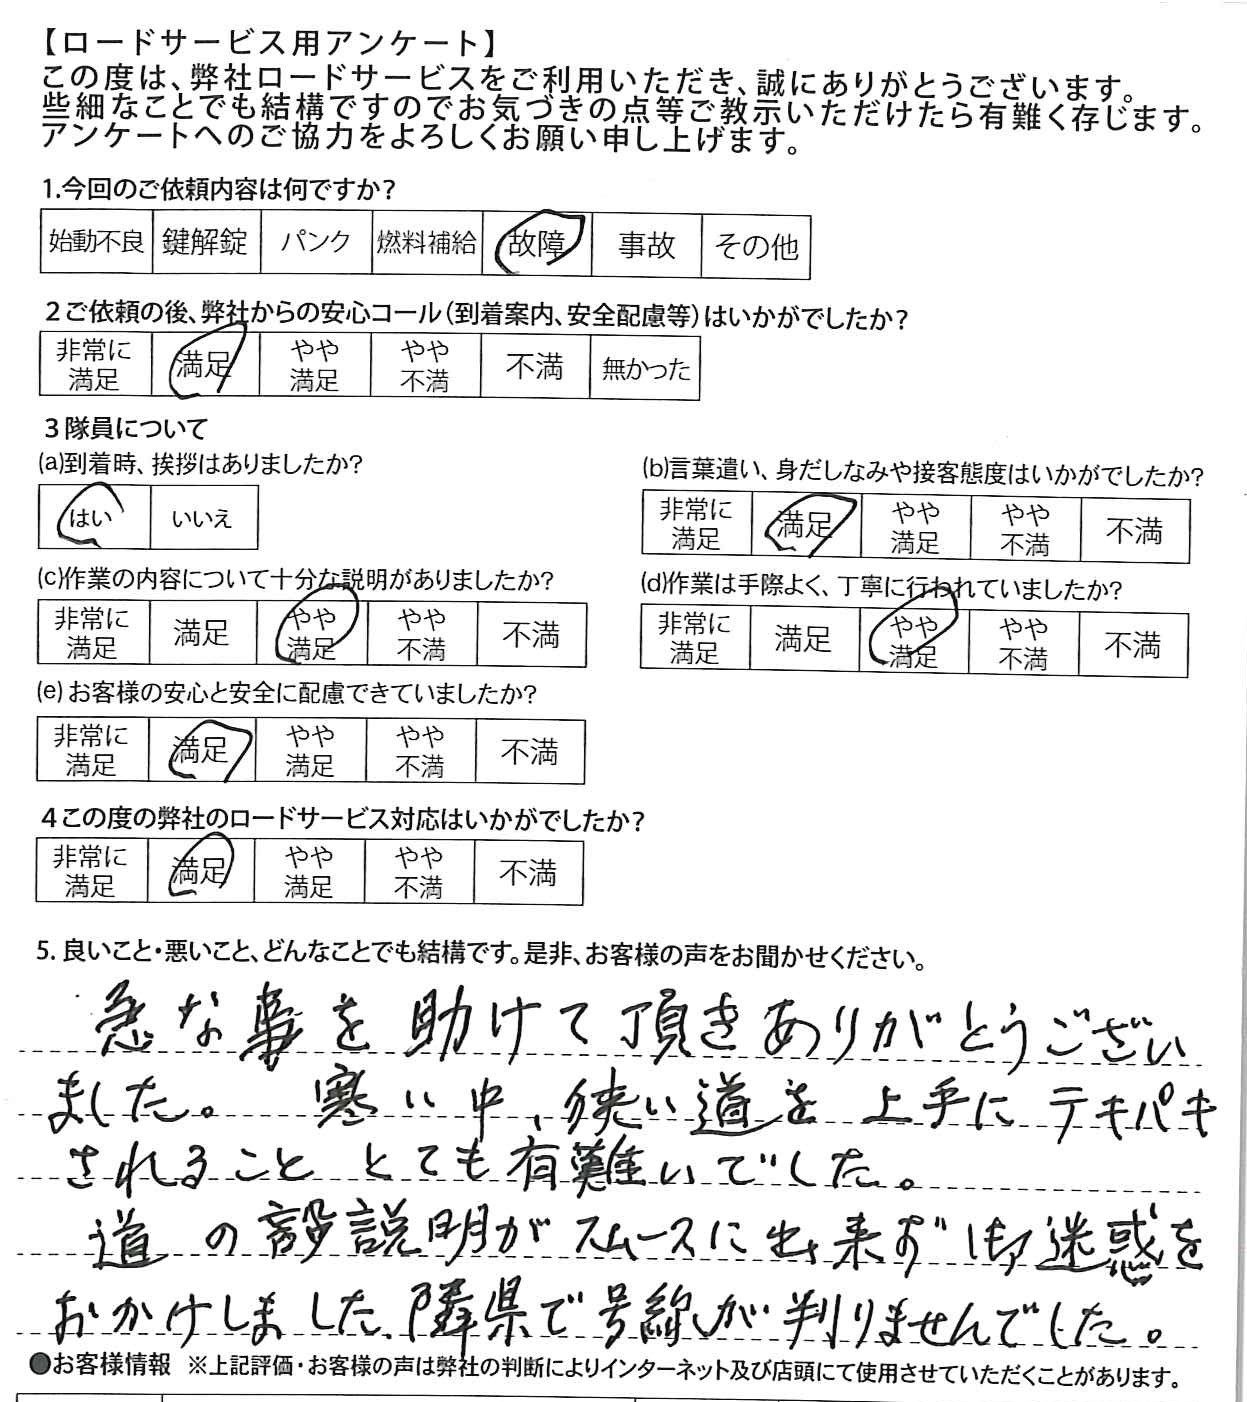 【ロードサービス用アンケート】
この度は、弊社ロードサービスをご利用いただき、誠にありがとうございます。
些細なことでも結構ですのでお気づきの点等ご教示いただけたら有難く存じます。
アンケートへのご協力をよろしくお願い申し上げます。
1.今回のご依頼内容は何ですか?
始動不良 鍵解錠 パンク 燃料補給 故障 事故 その他
2ご依頼の後、弊社からの安心コール(到着案内、安全配慮等)はいかがでしたか?
非常に満足 満足 やや満足 やや不満 不満 無かった
3隊員について
(a)到着時、挨拶はありましたか?
はい いいえ
(b)言葉遣い、身だしなみや接客態度はいかがでしたか?
非常に満足 満足 やや満足 やや不満 不満
(c)作業の内容について十分な説明がありましたか?
非常に満足 満足 やや満足 やや不満 不満
(d)作業は手際よく、丁寧に行われていましたか?
非常に満足 満足 やや満足 やや不満 不満
(e)お客様の安心と安全に配慮できていましたか?
非常に満足 満足 やや満足 やや不満 不満
4この度の弊社のロードサービス対応はいかがでしたか?
非常に満足 満足 やや満足 やや不満 不満
5.良いこと・悪いこと、どんなことでも結構です。是非、お客様の声をお聞かせください。
急な事を助けて頂きありがとうござい
ました。 寒い中、狭い道を上手にテキパキ
されること とても有難いでした。
道の説明がスムースに出来ず 迷惑を
おかけしました、隣県で号線が判りませんでした。
●お客様情報 ※上記評価・お客様の声は弊社の判断によりインターネット及び店頭にて使用させていただくことがあります。